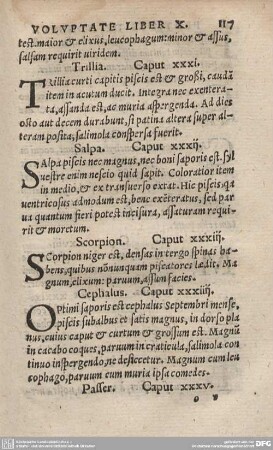 VOLVPTATE LIBER X. 117
test. maior & elixus, leucophagum: minor & assus,
salsam requirit uiridem.
Trillia. Caput xxxi.
TRillia curti capitis piscis est & grossi, caudā
item in acutum ducit. Integra nec exentera-
ta, assanda est, ac muria aspergenda. Ad dies
octo aut decem durabunt, si patina altera super al-
teram posita, salimola conspersa fuerit.
Salpa. Caput xxxij.
SAlpa piscis nec magnus, nec boni saporis est. Syl
uestre enim nescio quid sapit. Coloratior item
in medio, & ex transuerso extat. Hic piscis, quia
uentricosus admodum est, bene exēteratus, sed par
ua quantum fieri potest incisura, assaturam requi-
rit & moretum.
Scorpion. Caput xxxiij.
SCorpion niger est, densas in tergo spinas ha-
bens, quibus nōnunquam piscatores lædit. Ma
gnum, elixum: paruum, assum facies.
Cephalus. Caput xxxiiij.
OPtimi saporis est cephalus Septembri mense,
piscis subalbus et satis magnus, in dorso pla
nus, cuius caput & curtum & grossum est. Magnū
in cacabo coques, paruum in craticula, salimola con
tinuo inspergendo, ne desiccetur. Magnum cum leu
cophago, paruum cum muria ipsa comedes.
Passer. Caput xxxv.